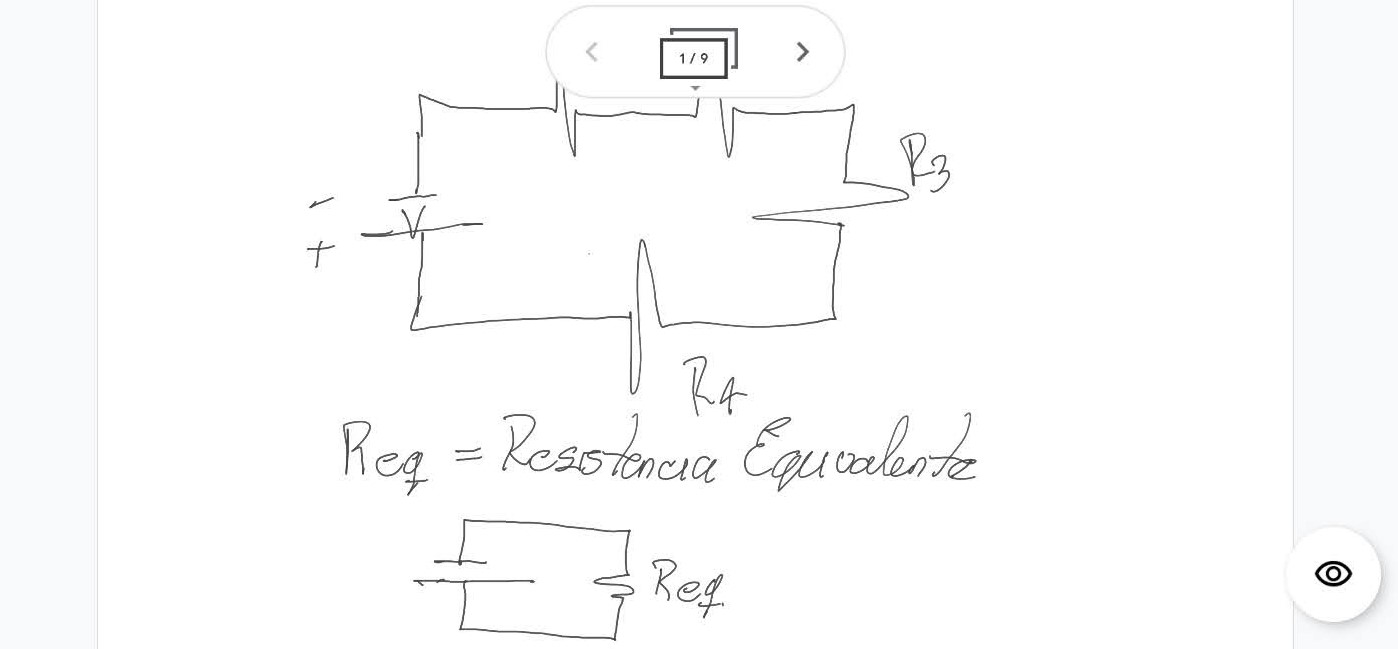 1/9
R3
-
V
+
R4
Req = Resistencia Equivalente
Req.